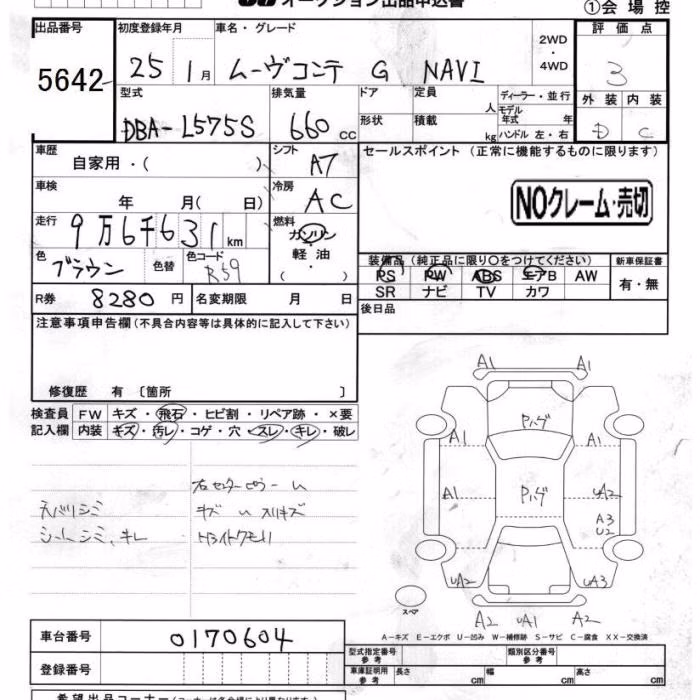 オークション出品申込書
①会場控
出品番号 初度登録年月 車名・グレード 評価点
5642 25 1月 ムーヴコンテ G NAVI 2WD・4WD 3
型式 排気量 ドア 定員 人 ディーラー・並行 外装 内装
DBA-L575S 660cc 形状 積載 kg モデル年式 年 ハンドル 左・右 D C
車歴 自家用・( ) シフト A7 セールスポイント(正常に機能するものに限ります)
車検 年 月( 日) 冷房 AC NOクレーム・売切
走行 9万6千631km 燃料 ガソリン・軽油・( )
色 ブラウン 色替 色コード R59 装備品(純正品に限り○をつけてください) 新車保証書
PS PW ABS エアB AW 有・無
SR ナビ TV カワ
R券 8280円 名変期限 月 日 後日品
注意事項申告欄(不具合内容等は具体的に記入して下さい)
修復歴 有 〔箇所 〕
検査員 FW キズ・飛石・ヒビ割・リペア跡・×要
記入欄 内装 キズ・汚レ・コゲ・穴・スレ・キレ・破レ
右センターピラー
天バリシミ キズ スリキズ
シートシミ、キレ
A1 A1
Pハゲ
A1 A1
A1 Pハゲ uA2
A3
U2
uA2 uA3
スペア A2 uA1 A2
A-キズ E-エクボ U-凹み W-補修跡 S-サビ C-腐食 XX-交換済
車台番号 0170604 型式指定番号 参考 類別区分番号 参考
登録番号 車庫証明用 参考 長さ cm 幅 cm 高さ cm
希望出品コーナー